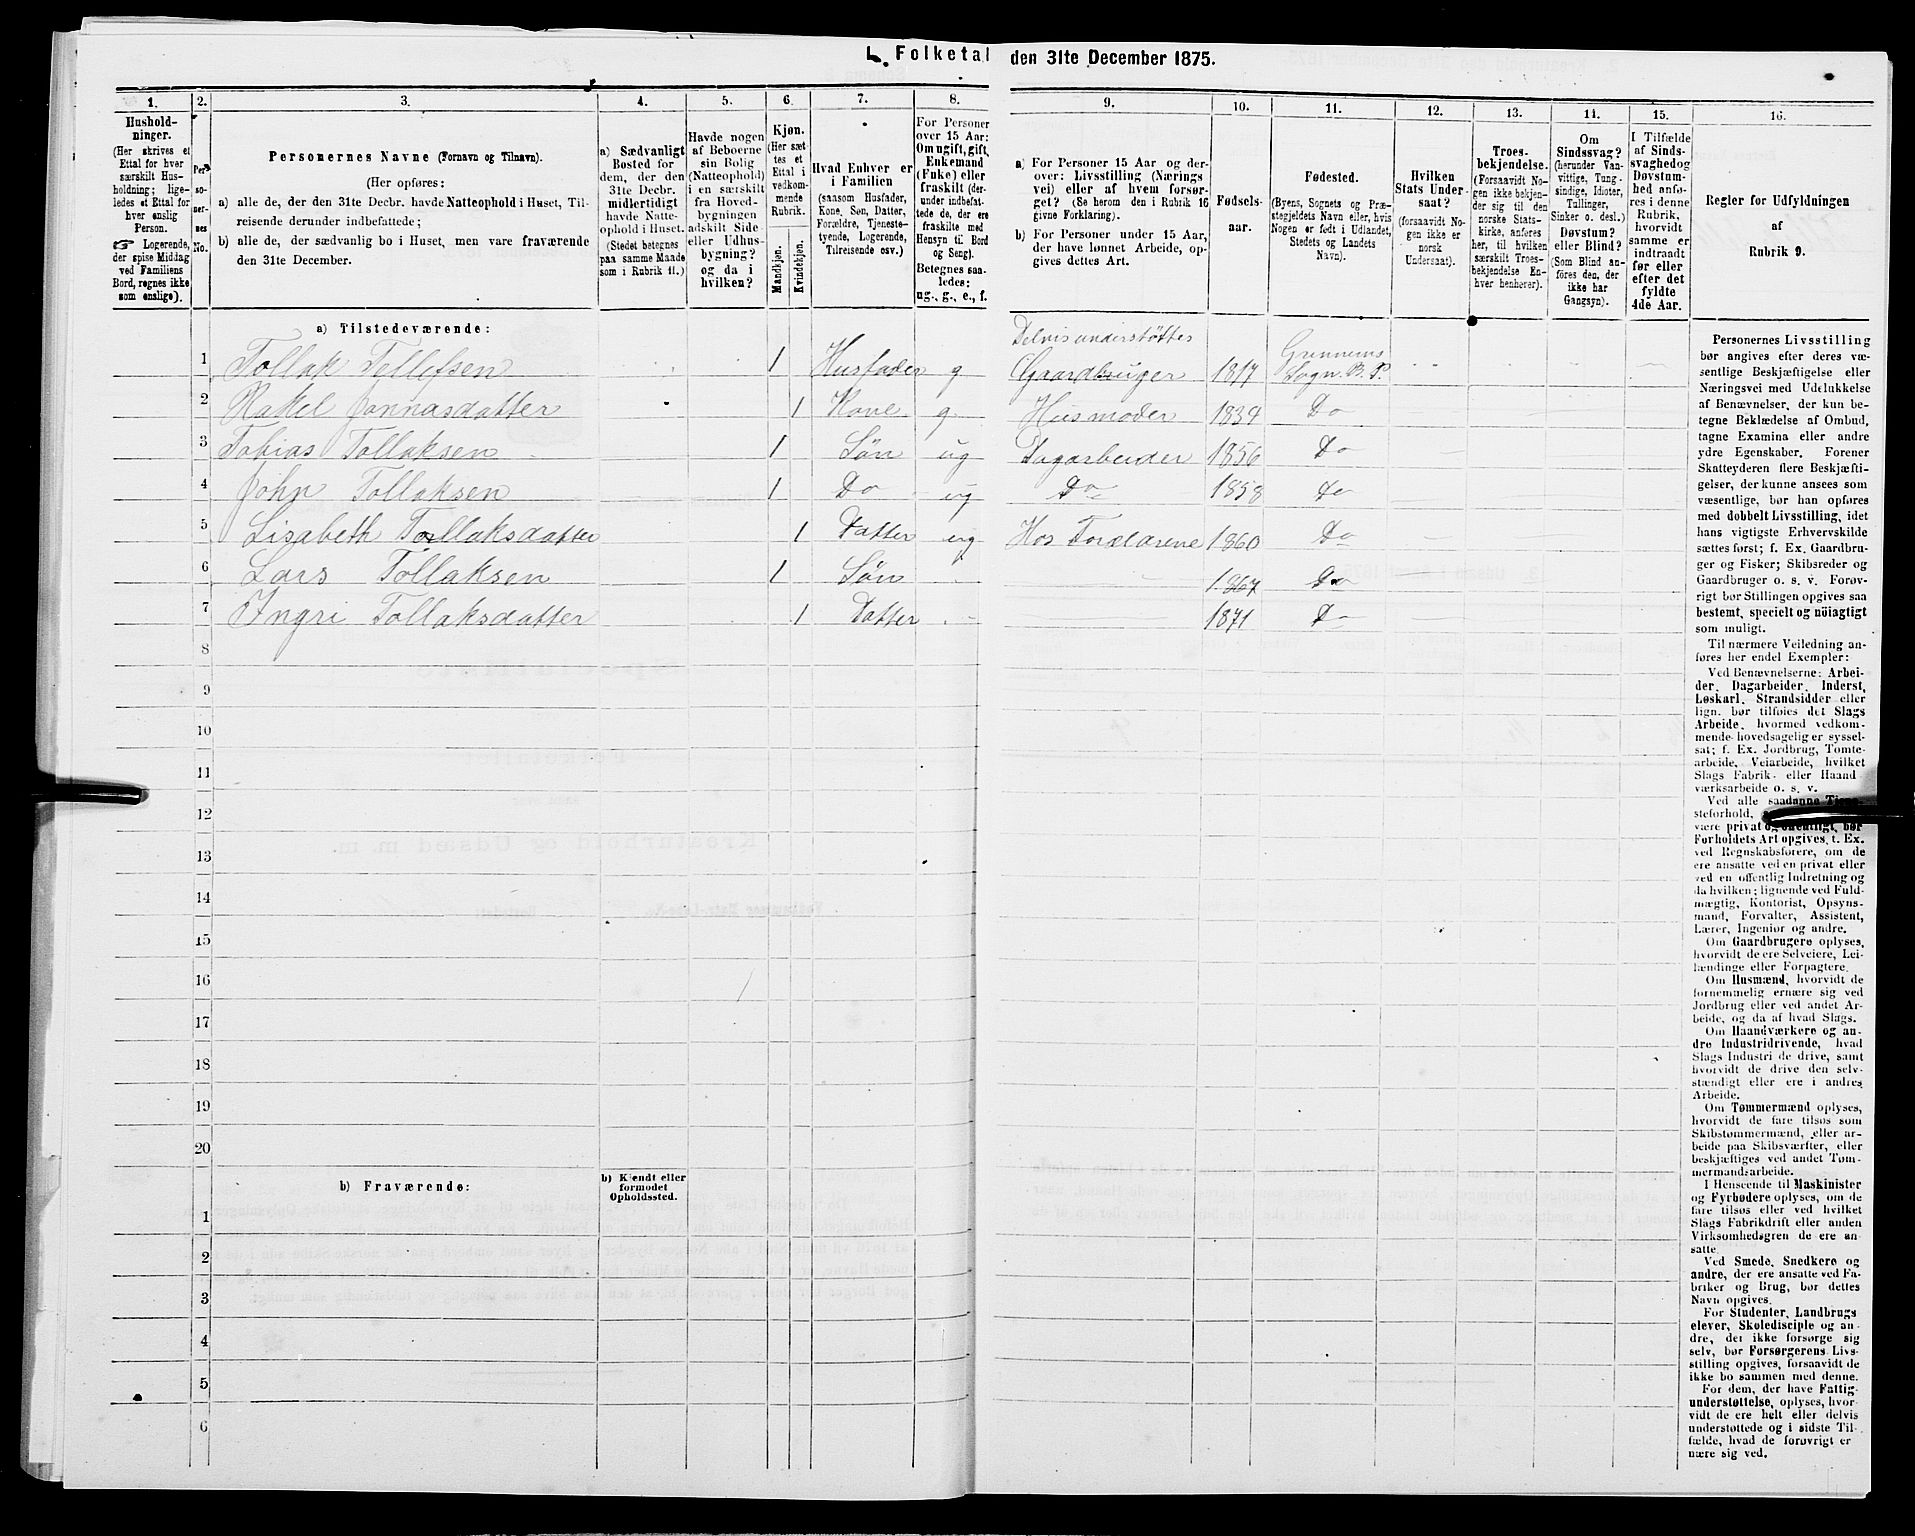 I. Folketal den 31te December 1875.
1. 2. 3. 4. 5. 6. 7. 8. 9. 10. 11. 12. 13. 14. 15. 16.
Hushold-
ninger.
(Her skrives et
Ettal for hver
særskilt Hus-
holdning; lige-
ledes et Ettal for
hver enslig
Person.
☞ Logerende,
der spise Middag
ved Familiens
Bord, regnes ikke
som enslige).
Per-
so-
ner-
nes
No.
Personernes Navne (Fornavn og Tilnavn).
(Her opføres:
a) alle de, der den 31te Decbr. havde Natteophold i Huset, Til-
reisende derunder indbefattede;
b) alle de, der sædvanlig bo i Huset, men vare fraværende
den 31te December.
a) Sædvanligt
Bosted for
dem, der den
31te Decbr.
midlertidigt
havde Natte-
ophold i Huset.
(Stedet betegnes
paa samme Maade
som i Rubrik 11.)
Havde nogen
af Beboerne
sin Bolig
(Natteophold)
i en særskilt
fra Hoved-
bygningen
adskilt Side-
eller Udhus-
bygning?
og da i
hvilken?
Kjøn.
(Her sæt-
tes et
Ettal i
vedkom-
mende
Rubrik.
Mandkjøn.
Kvindekjøn.
Hvad Enhver er
i Familien
(saasom Husfader,
Kone, Søn, Datter,
Forældre, Tjeneste-
tyende, Logerende,
Tilreisende osv.)
For Personer
over 15 Aar:
Om ugift, gift,
Enkemand
(Enke) eller
fraskilt (der-
under indbefat-
tede de, der ere
fraskilte med
Hensyn til Bord
og Seng).
Betegnes saa-
ledes:
ug., g., e., f.
a) For Personer 15 Aar og der-
over: Livsstilling (Nærings-
vei) eller af hvem forsør-
get? (Se herom den i Rubrik 16
givne Forklaring).
b) For Personer under 15 Aar,
der have lønnet Arbeide, op-
gives dettes Art.
Fødsels-
aar.
Fødested.
(Byens, Sognets og Præ-
stegjeldets Navn eller, hvis
Nogen er født i Udlandet,
Stedets og Landets
Navn).
Hvilken
Stats Under-
saat?
(forsaavidt No-
gen ikke er
norsk
Undersaat).
Troes-
bekjendelse.
(Forsaavidt No-
gen ikke bekjen-
der sig til den
norske Stats-
kirke, anføres
her, til hvilken
særskilt Troes-
bekjendelse En-
hver henhører).
Om
Sindssvag?
(herunder Van-
vittige, Tung-
sindige, Idioter,
Tullinger,
Sinker o. desl.)
Døvstum?
eller Blind?
(Som Blind an-
føres den, der
ikke har
Gangsyn).
I Tilfælde
af Sinds-
svaghed og
Døvstum-
hed anfø-
res i denne
Rubrik,
hvorvidt
samme er
indtraadt
før eller
efter det
fyldte
4de Aar.
Regler for Udfyldningen
af
Rubrik 9.
a) Tilstedeværende:
1 Tollak Tellefsen 1 Husfader g Delvis understøttes Gaardbruger 1817 Sogn. B. P.
2 Rakel Jonnasdatter 1 Kone g. Husmoder 1834 Do
3 Tobias Tollaksen 1 Søn ug Dagarbeider 1856 Do
4 John Tollaksen 1 Do ug Do 1858 Do
5 Lisabeth Tollaksdatter 1 Datter ug Hos Forældrene 1860 Do
6 Lars Tollaksen 1 Søn 1867 Do
7 Ingri Tollaksdatter 1 Datter 1871 Do
8
9
10
11
12
13
14
15
16
17
18
19
20
b) Fraværende:
b) Kjendt eller
formodet
Opholdssted.
1
2
3
4
5
6
Personernes Livsstilling
bør angives efter deres væ-
sentlige Beskjæftigelse eller
Næringsvei med Udelukkelse
af Benævnelser, der kun be-
tegne Beklædelse af Ombud,
tagne Examina eller andre
ydre Egenskaber. Forener
Skatteyderen flere Beskjæfti-
gelser, der kunne ansees som
væsentlige, bør han opføres
med dobbelt Livsstilling, idet
hans vigtigste Erhvervskilde
sættes først; f. Ex. Gaardbru-
ger og Fisker; Skibsreder og
Gaardbruger o. s. v. Forøv-
rigt bør Stillingen opgives saa
bestemt, specielt og nöiagtigt
som muligt.
Til nærmere Veiledning an-
føres her endel Exempler:
Ved Benævnelserne: Arbei-
der, Dagarbeider, Inderst,
Løskarl, Strandsidder eller
lign. bør tilføies det Slags
Arbeide, hvormed vedkom-
mende hovedsagelig er syssel-
sat; f. Ex. Jordbrug, Tomte-
arbeide, Veiarbeide, hvilket
Slags Fabrik- eller Haand-
værksarbeide o. s. v.
Ved alle saadanne Tjene-
steforhold,
være privat og offentligt, bør
Forholdets Art opgives, t. Ex.
ved Regnskabsførere, om de
ere ansatte ved en privat eller
ved en offentlig Indretning og
da hvilken; lignende ved Fuld-
mægtig, Kontorist, Opsyns-
mand, Forvalter, Assistent,
Lærer, Ingeniør og andre.
Om Gaardbrugere oplyses,
hvorvidt de ere Selveiere, Lei-
lændinge eller Forpagtere.
Om Husmænd, hvorvidt de
fornemmelig ernære sig ved
Jordbrug eller ved andet Ar-
beide, og da af hvad Slags.
Om Haandværkere og an-
dre Industridrivende, hvad
Slags Industri de drive, samt
hvorvidt de drive den selv-
stændigt eller ere i andres
Arbeide.
Om Tømmermænd oplyses,
hvorvidt de fare tilsøs som
Skibstømmermænd, eller ar-
beide paa Skibsværfter, eller
beskjæftiges ved andet Tøm-
mermandsarbeide.
I Henseende til Maskinister
og Fyrbødere oplyses, om de
fare tilsøs eller ved hvilket
Slags Fabrikdrift eller anden
Virksomhedsgren de ere an-
satte.
Ved Smede, Snedkere og
andre, der ere ansatte ved Fa-
briker og Brug, bør dettes
Navn opgives.
For Studenter, Landbrugs-
elever, Skoledisciple og an-
dre, der ikke forsørge sig
selv, bør Forsørgerens Livs-
stilling opgives, forsaavidt de
ikke bo sammen med denne.
For dem, der have Fattig-
understøttelse, oplyses, hvor-
vidt de ere helt eller delvis
understøttede og i sidste Til-
fælde, hvad de forøvrigt er-
nære sig ved.